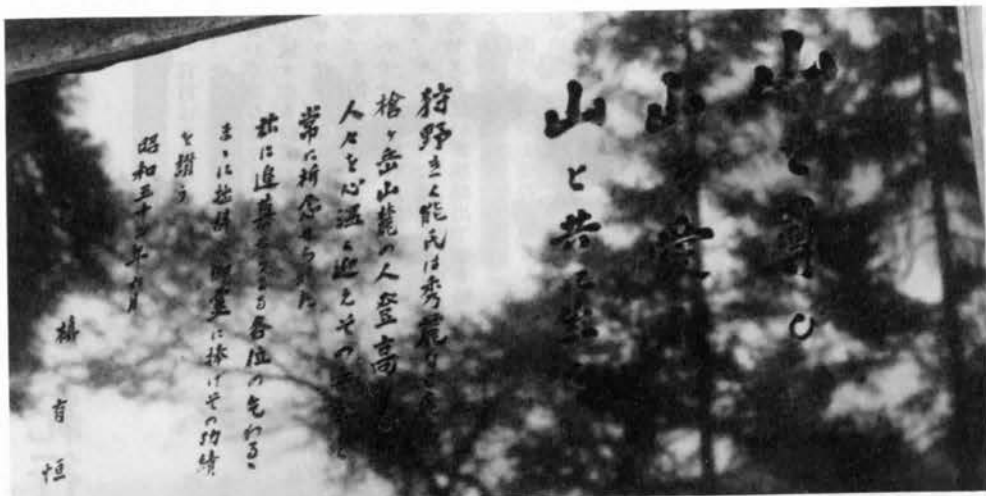 山を尊び
山を愛し
山と共に生く
狩野きく能氏は秀麗なる
槍ヶ岳山麓の人登高
人々を心温く迎えその
常に祈念せられた
茲に追慕せらるる各位の乞わるる
まゝに 御霊に捧げその功績
を讃う
昭和五十 年 月
槙有恒